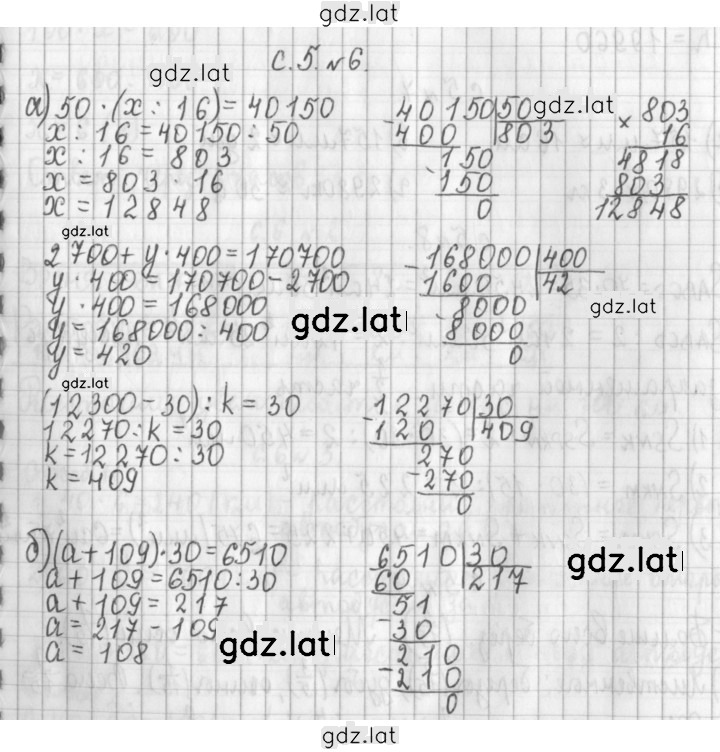 gdz.lat
с. 5. № 6.
gdz.lat
а) 50 · (x : 16) = 40150
x : 16 = 40150 : 50
x : 16 = 803
x = 803 · 16
x = 12848
40150 | 50 gdz.lat
- 400 | 803
150
- 150
0
× 803
16
4818
803
12848
gdz.lat
2700 + y · 400 = 170700
y · 400 = 170700 - 2700
y · 400 = 168000
y = 168000 : 400
y = 420
gdz.lat
- 168000 | 400
1600 | 42
- 8000
8000
0
gdz.lat
gdz.lat
(12300 - 30) : k = 30
12270 : k = 30
k = 12270 : 30
k = 409
- 12270 | 30
120 | 409
270
- 270
0
б) (a + 109) · 30 = 6510
a + 109 = 6510 : 30
a + 109 = 217
a = 217 - 109
a = 108
gdz.lat
- 6510 | 30
60 | 217
51
- 30
210
- 210
0
gdz.lat
gdz.lat